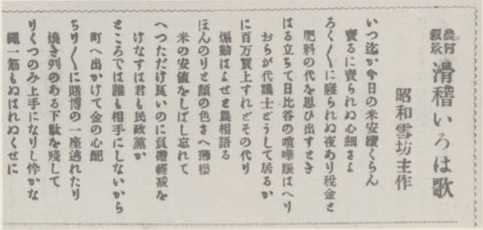 農村
滑稽いろは歌
昭和雪坊主作
いつ迄か今日の米安續くらん
賣るに賣られぬ心細さよ
ろく〳〵に寝られぬ夜あり税金と
肥料の代を思ひ出すとき
はる立ちて日比谷の喧嘩賑はへり
おらが代議士どうして居るか
に百万買上すれどその代り
煽動はよせと農相語る
ほんのりと顔の色さへ
米の安値をしばし忘れて
へつただけ いのに負擔輕減を
けなすは君も民政黨か
ところでは誰も相手にしないから
町へ出かけて金の心配
ちり〳〵に賭博の一座逃れたり
焼き のある下駄を殘して
りくつのみ上手になりし伜かな
縄一筋もぬはれぬくせに